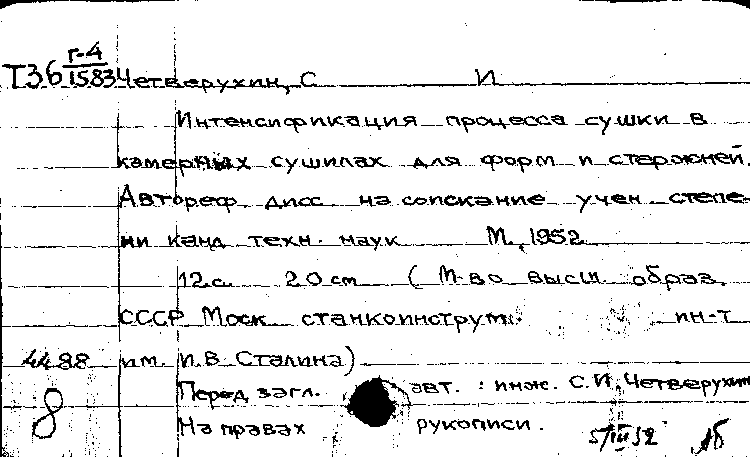 Г-4
Т36 1583 Четверухин, С И
Интенсификация процесса сушки в
камерных сушилах для форм и стержней.
Автореф дисс на соискание учен степе-
ни канд техн. наук М, 1952
12 с. 20 см (М-во высш. образ.
СССР Моск станкоинструм. ин-т
4488 им. И. В Сталина)
8 Перед загл. авт. : инж. С. И. Четверухин
На правах рукописи.
5/III 52